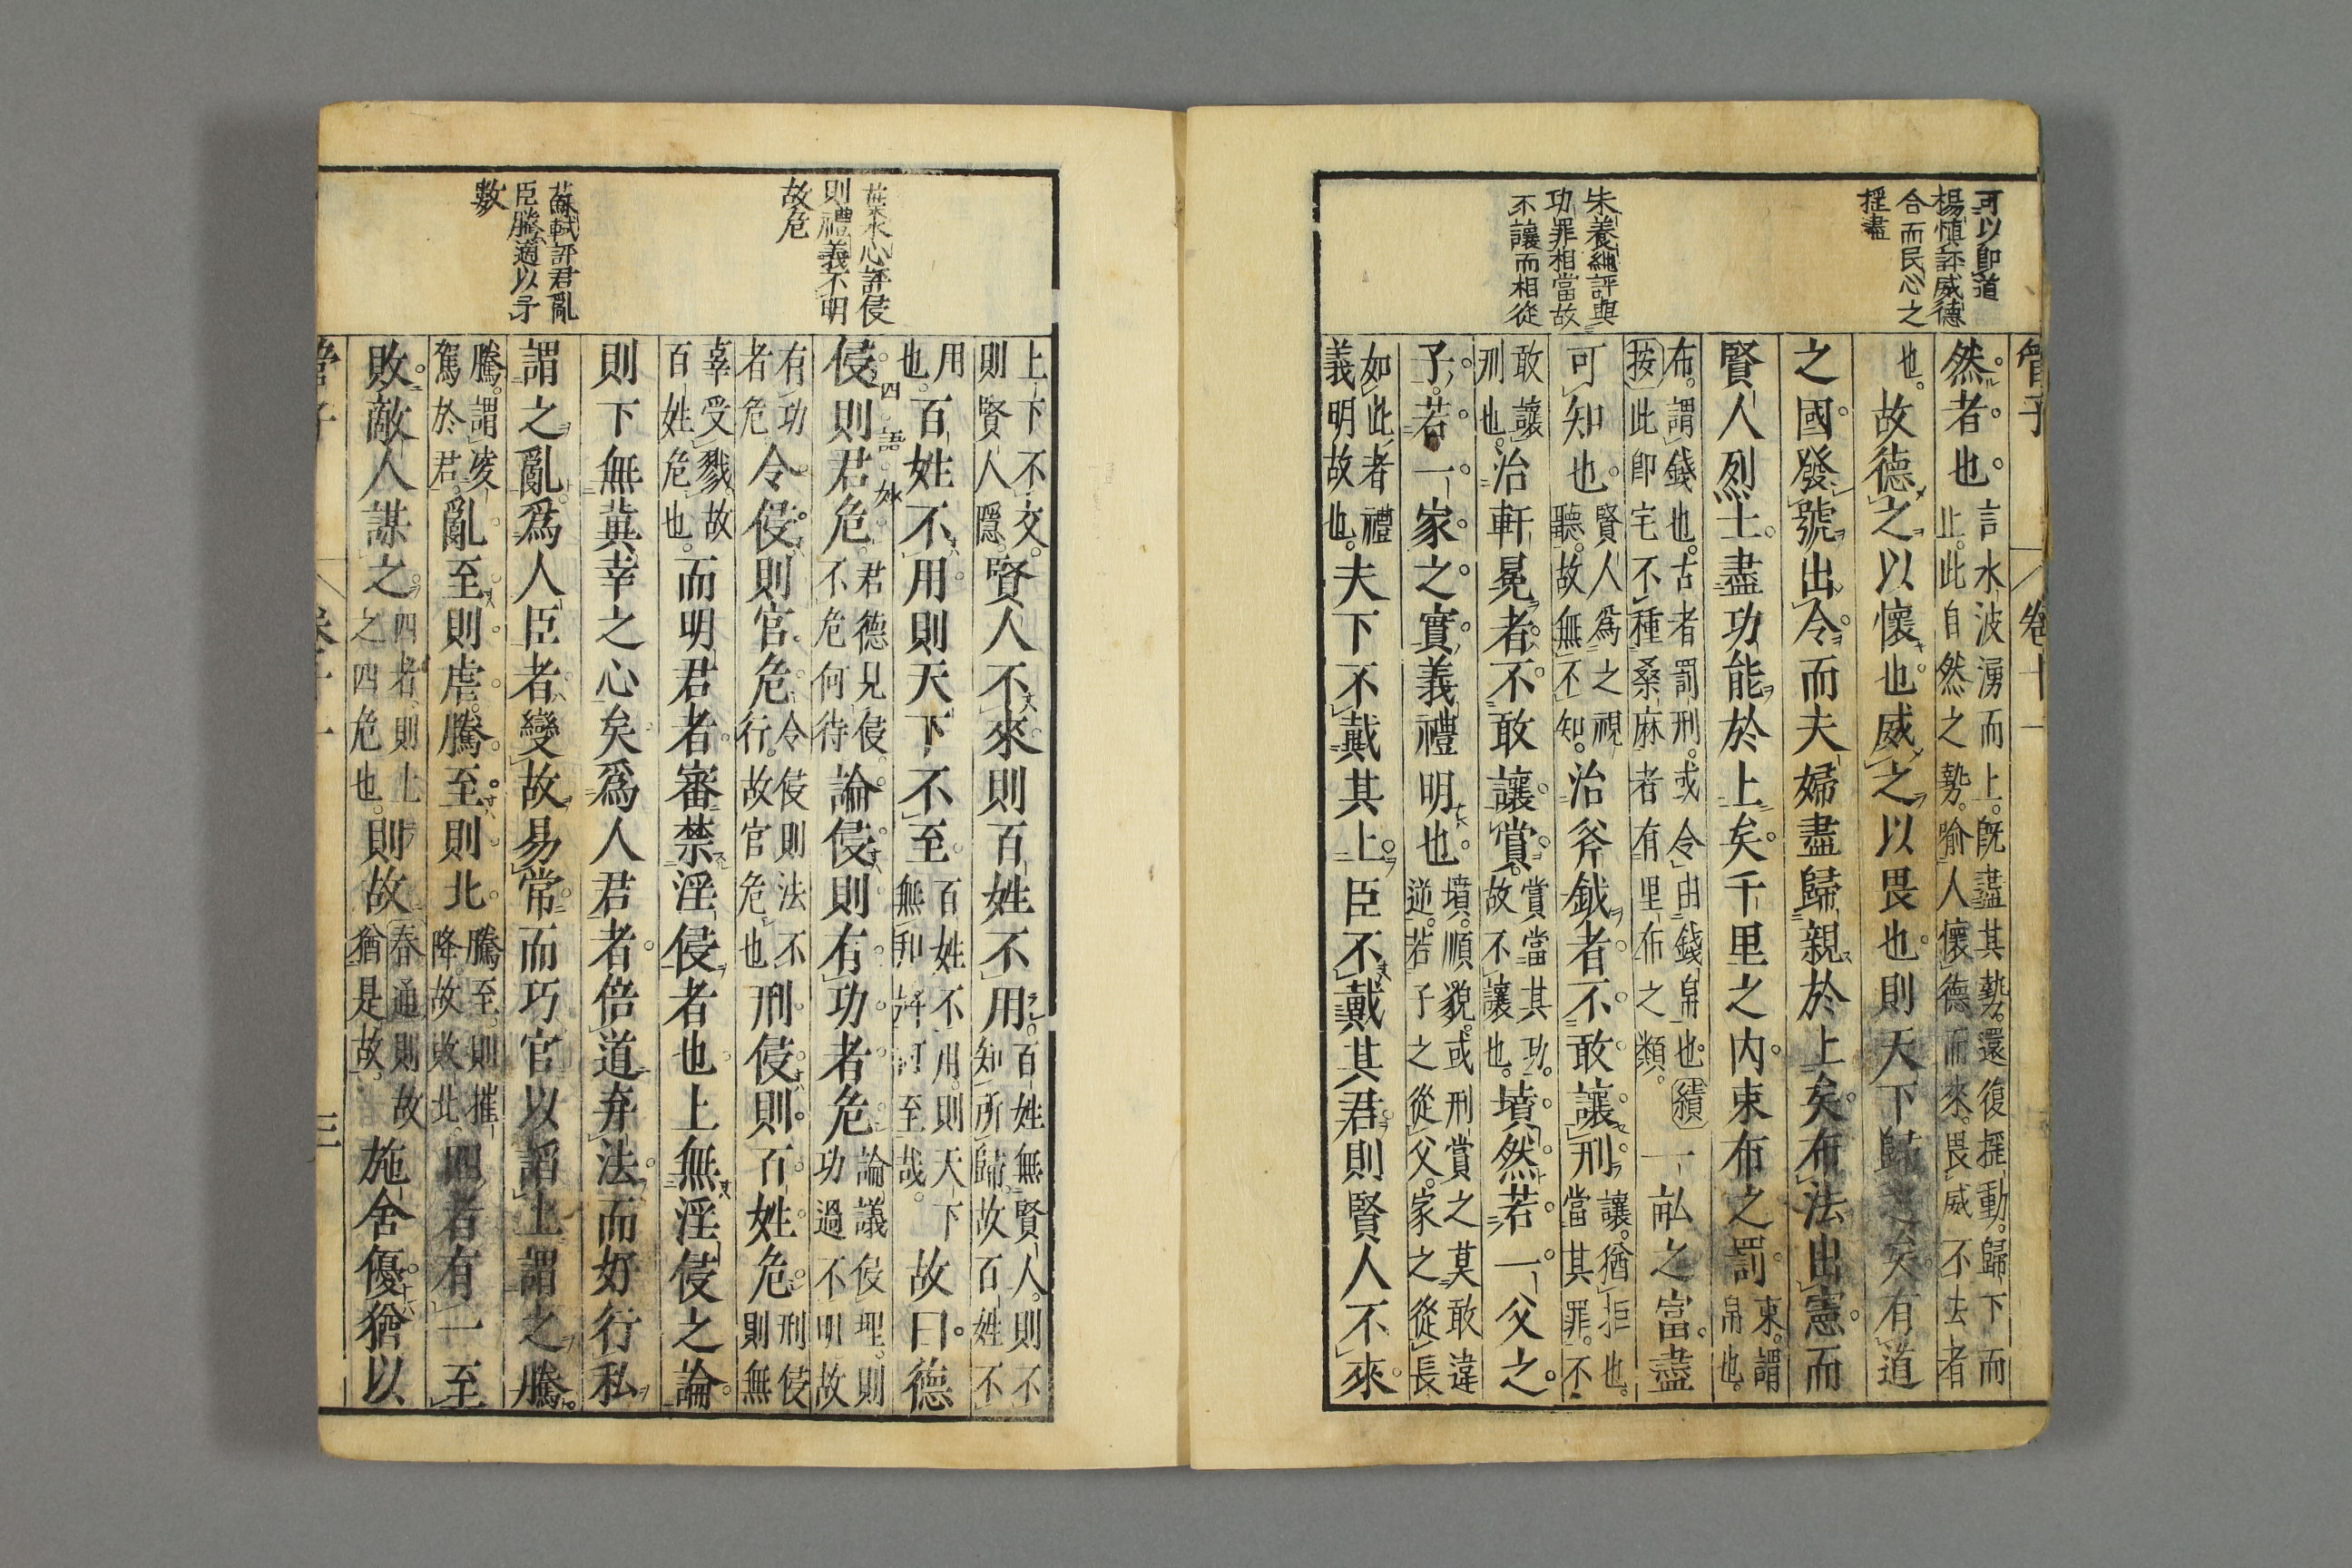 可以卽道
楊愼評威德
合而民心之
揺盡
朱養純評與
功罪相當故
不讓而相從
管子
卷十一
然者也言水波湧而上旣盡其勢還復揺動歸下而
止此自然之勢喻人懷德而來畏威不去者
也故德之以懷也威之以畏也則天下歸之矣有道
之國發號出令而夫婦盡歸親於上矣布法出憲而
賢人烈士盡功能於上矣千里之内束布之罰束謂
帛也
布謂錢也古者罰刑或令出錢帛也續
按此卽宅不種桑麻者有里布之類一畝之富盡
可知也賢人爲之視
聽故無不知治斧鉞者不敢讓刑讓猶拒也
當其罪不
敢讓
刑也治軒冕者不敢讓賞賞當其功
故不讓也墳然若一父之
子若一家之實義禮明也墳順貌或刑賞之莫敢違
逆若子之從父家之從長
如此者禮
義明故也夫下不戴其上臣不戴其君則賢人不來
葉水心評侵
則禮義不明
故危
蘇軾評君亂
臣騰適以予
數
上下不交
則賢人隱賢人不來則百姓不用百姓無賢人則不
知所歸故百姓不
用
也百姓不用則天下不至百姓不用則天下
無卽許可至哉故曰德
四語妙
侵則君危君德見侵
不危何待論侵則有功者危論議侵理則
功過不明故
有功
者危令侵則官危令侵則法不
行故官危也刑侵則百姓危刑侵
則無
辜受戮故
百姓危也而明君者審禁淫侵者也上無淫侵之論
則下無冀幸之心矣爲人君者倍道弃法而好行私
謂之亂爲人臣者變故易常而巧官以謟上謂之騰
騰謂凌
駕於君亂至則虐騰至則北騰至則摧
降故敗北四者有一至
敗敵人謀之四者則上
之四危也則故春通則故
猶是故施舍優猶以
管子
卷十一
三